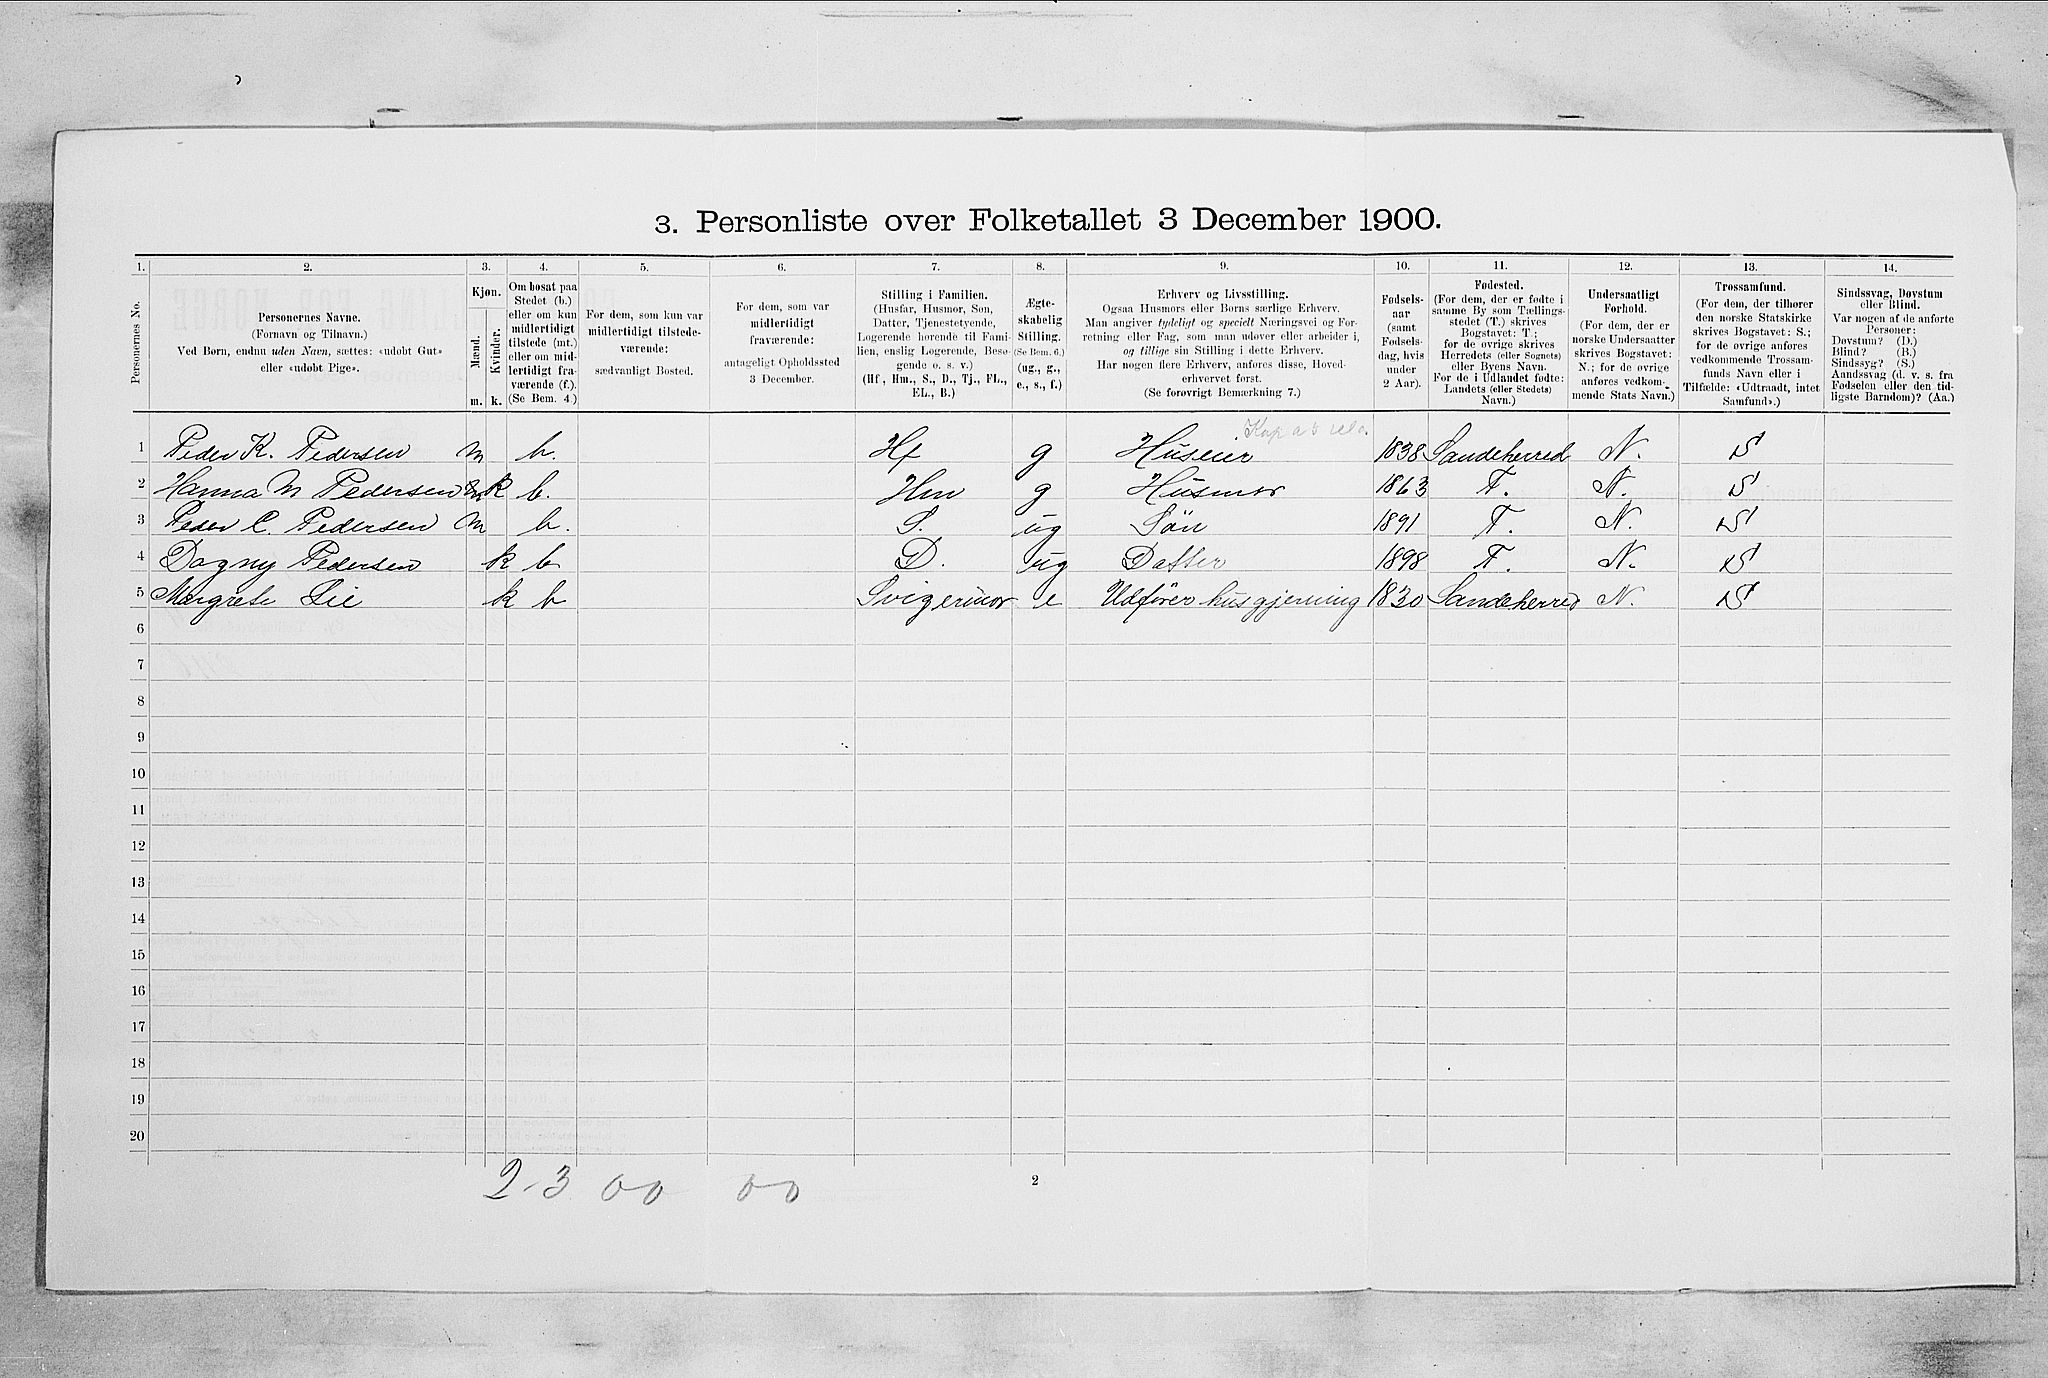 3. Personliste over Folketallet 3 December 1900.
1. 2. 3. 4. 5. 6. 7. 8. 9. 10. 11. 12. 13. 14.
Personernes No.
Personernes Navne.
(Fornavn og Tilnavn.)
Ved Børn, endnu uden Navn, sættes: «udøbt Gut»
eller «udøbt Pige».
Kjøn.
Mænd.
Kvinder.
m. k.
Om bosat paa
Stedet (b.)
eller om kun
midlertidigt
tilstede (mt.)
eller om mid-
lertidigt fra-
værende (f.).
(Se Bem. 4.)
For dem, som kun var
midlertidigt tilstede-
værende:
sædvanligt Bosted.
For dem, som var
midlertidigt
fraværende:
antageligt Opholdssted
3 December.
Stilling i Familien.
(Husfar, Husmor, Søn,
Datter, Tjenestetyende,
Logerende hørende til Fami-
lien, enslig Logerende, Besø-
gende o. s. v.)
(Hf., Hm., S., D., Tj., FL.,
EL., B.)
Ægte-
skabelig
Stilling.
(Se Bem. 6.)
(ug., g.,
e., s., f.)
Erhverv og Livsstilling.
Ogsaa Husmors eller Børns særlige Erhverv.
Man angiver tydeligt og specielt Næringsvei og For-
retning eller Fag, som man udøver eller arbeider i,
og tillige sin Stilling i dette Erhverv.
Har nogen flere Erhverv, anføres disse, Hoved-
erhvervet først.
(Se forøvrigt Bemærkning 7.)
Fødsels-
aar
(samt
Fødsels-
dag, hvis
under
2 Aar).
Fødested.
(For dem, der er fødte i
samme By som Tællings-
stedet (T.) skrives
Bogstavet: T.;
for de øvrige skrives
Herredets (eller Sognets)
eller Byens Navn.
For de i Udlandet fødte:
Landets (eller Stedets)
Navn.)
Undersaatligt
Forhold.
(For dem, der er
norske Undersaatter
skrives Bogstavet:
N.; for de øvrige
anføres vedkom-
mende Stats Navn.)
Trossamfund.
(For dem, der tilhører
den norske Statskirke
skrives Bogstavet: S.;
for de øvrige anføres
vedkommende Trossam-
funds Navn eller i
Tilfælde: «Udtraadt, intet
Samfund».)
Sindssvag, Døvstum
eller Blind.
Var nogen af de anførte
Personer:
Døvstum? (D.)
Blind? (B.)
Sindssyg? (S.)
Aandssvag (d. v. s. fra
Fødselen eller den tid-
ligste Barndom)? (Aa.)
1 Peder K. Pedersen m b. Hf g Huseier 1838 Sandeherred N. S
2 Hanna M Pedersen k b. Hm g Husmor 1863 T. N. S
3 Peder C. Pedersen m b. S. ug Søn 1891 T. N. S
4 Dagny Pedersen k b D. ug Datter 1898 T. N. S
5 Margrete Lie k b Svigermor e Udfører husgjerning 1830 Sandeherred N. S
6
7
8
9
10
11
12
13
14
15
16
17
18
19
20
2-3 00 00
2